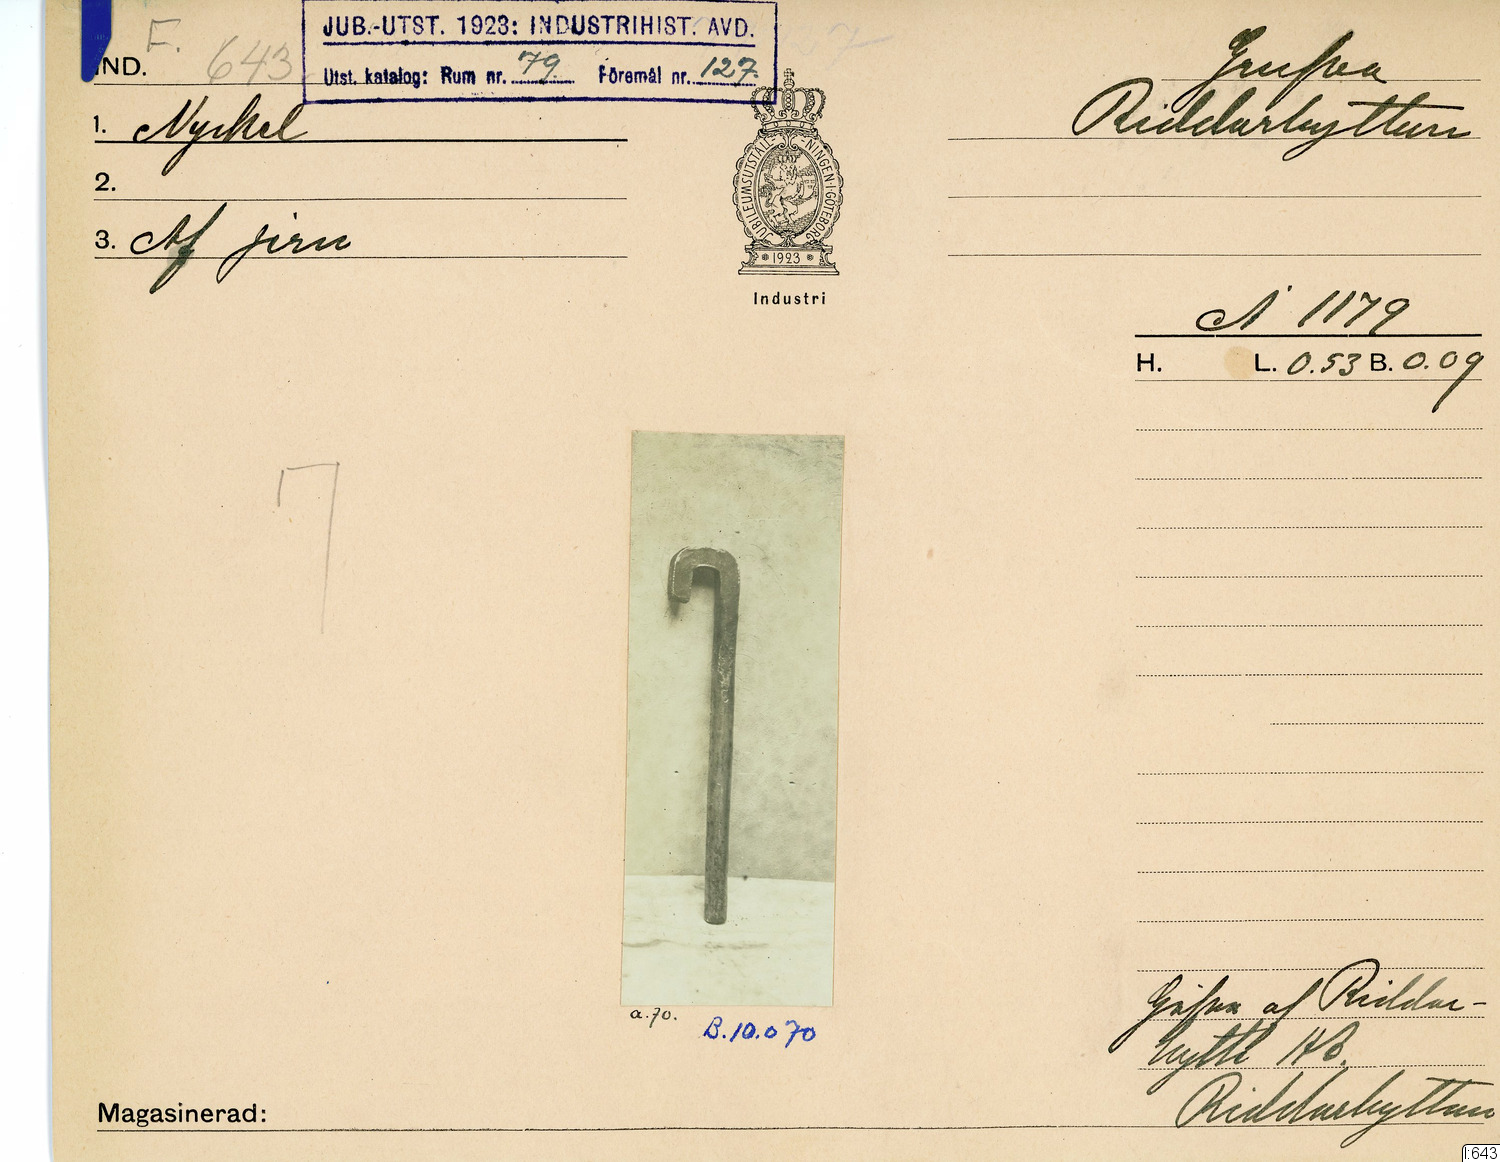 JUB.-UTST. 1923: INDUSTRIHIST. AVD.
Utst. katalog: Rum nr. 79. Föremål nr. 127.
IND. F. 643
1. Nyckel
2.
3. Af jern
JUBILEUMSUTSTÄLLNINGEN·I·GÖTEBORG
1923
Industri
Grufva
Riddarhyttan
N 1179
H. L. 0.53 B. 0.09
a.70.
B.10.070
Gåfva af Riddar-
hytte AB.
Riddarhyttan
Magasinerad:
I:643